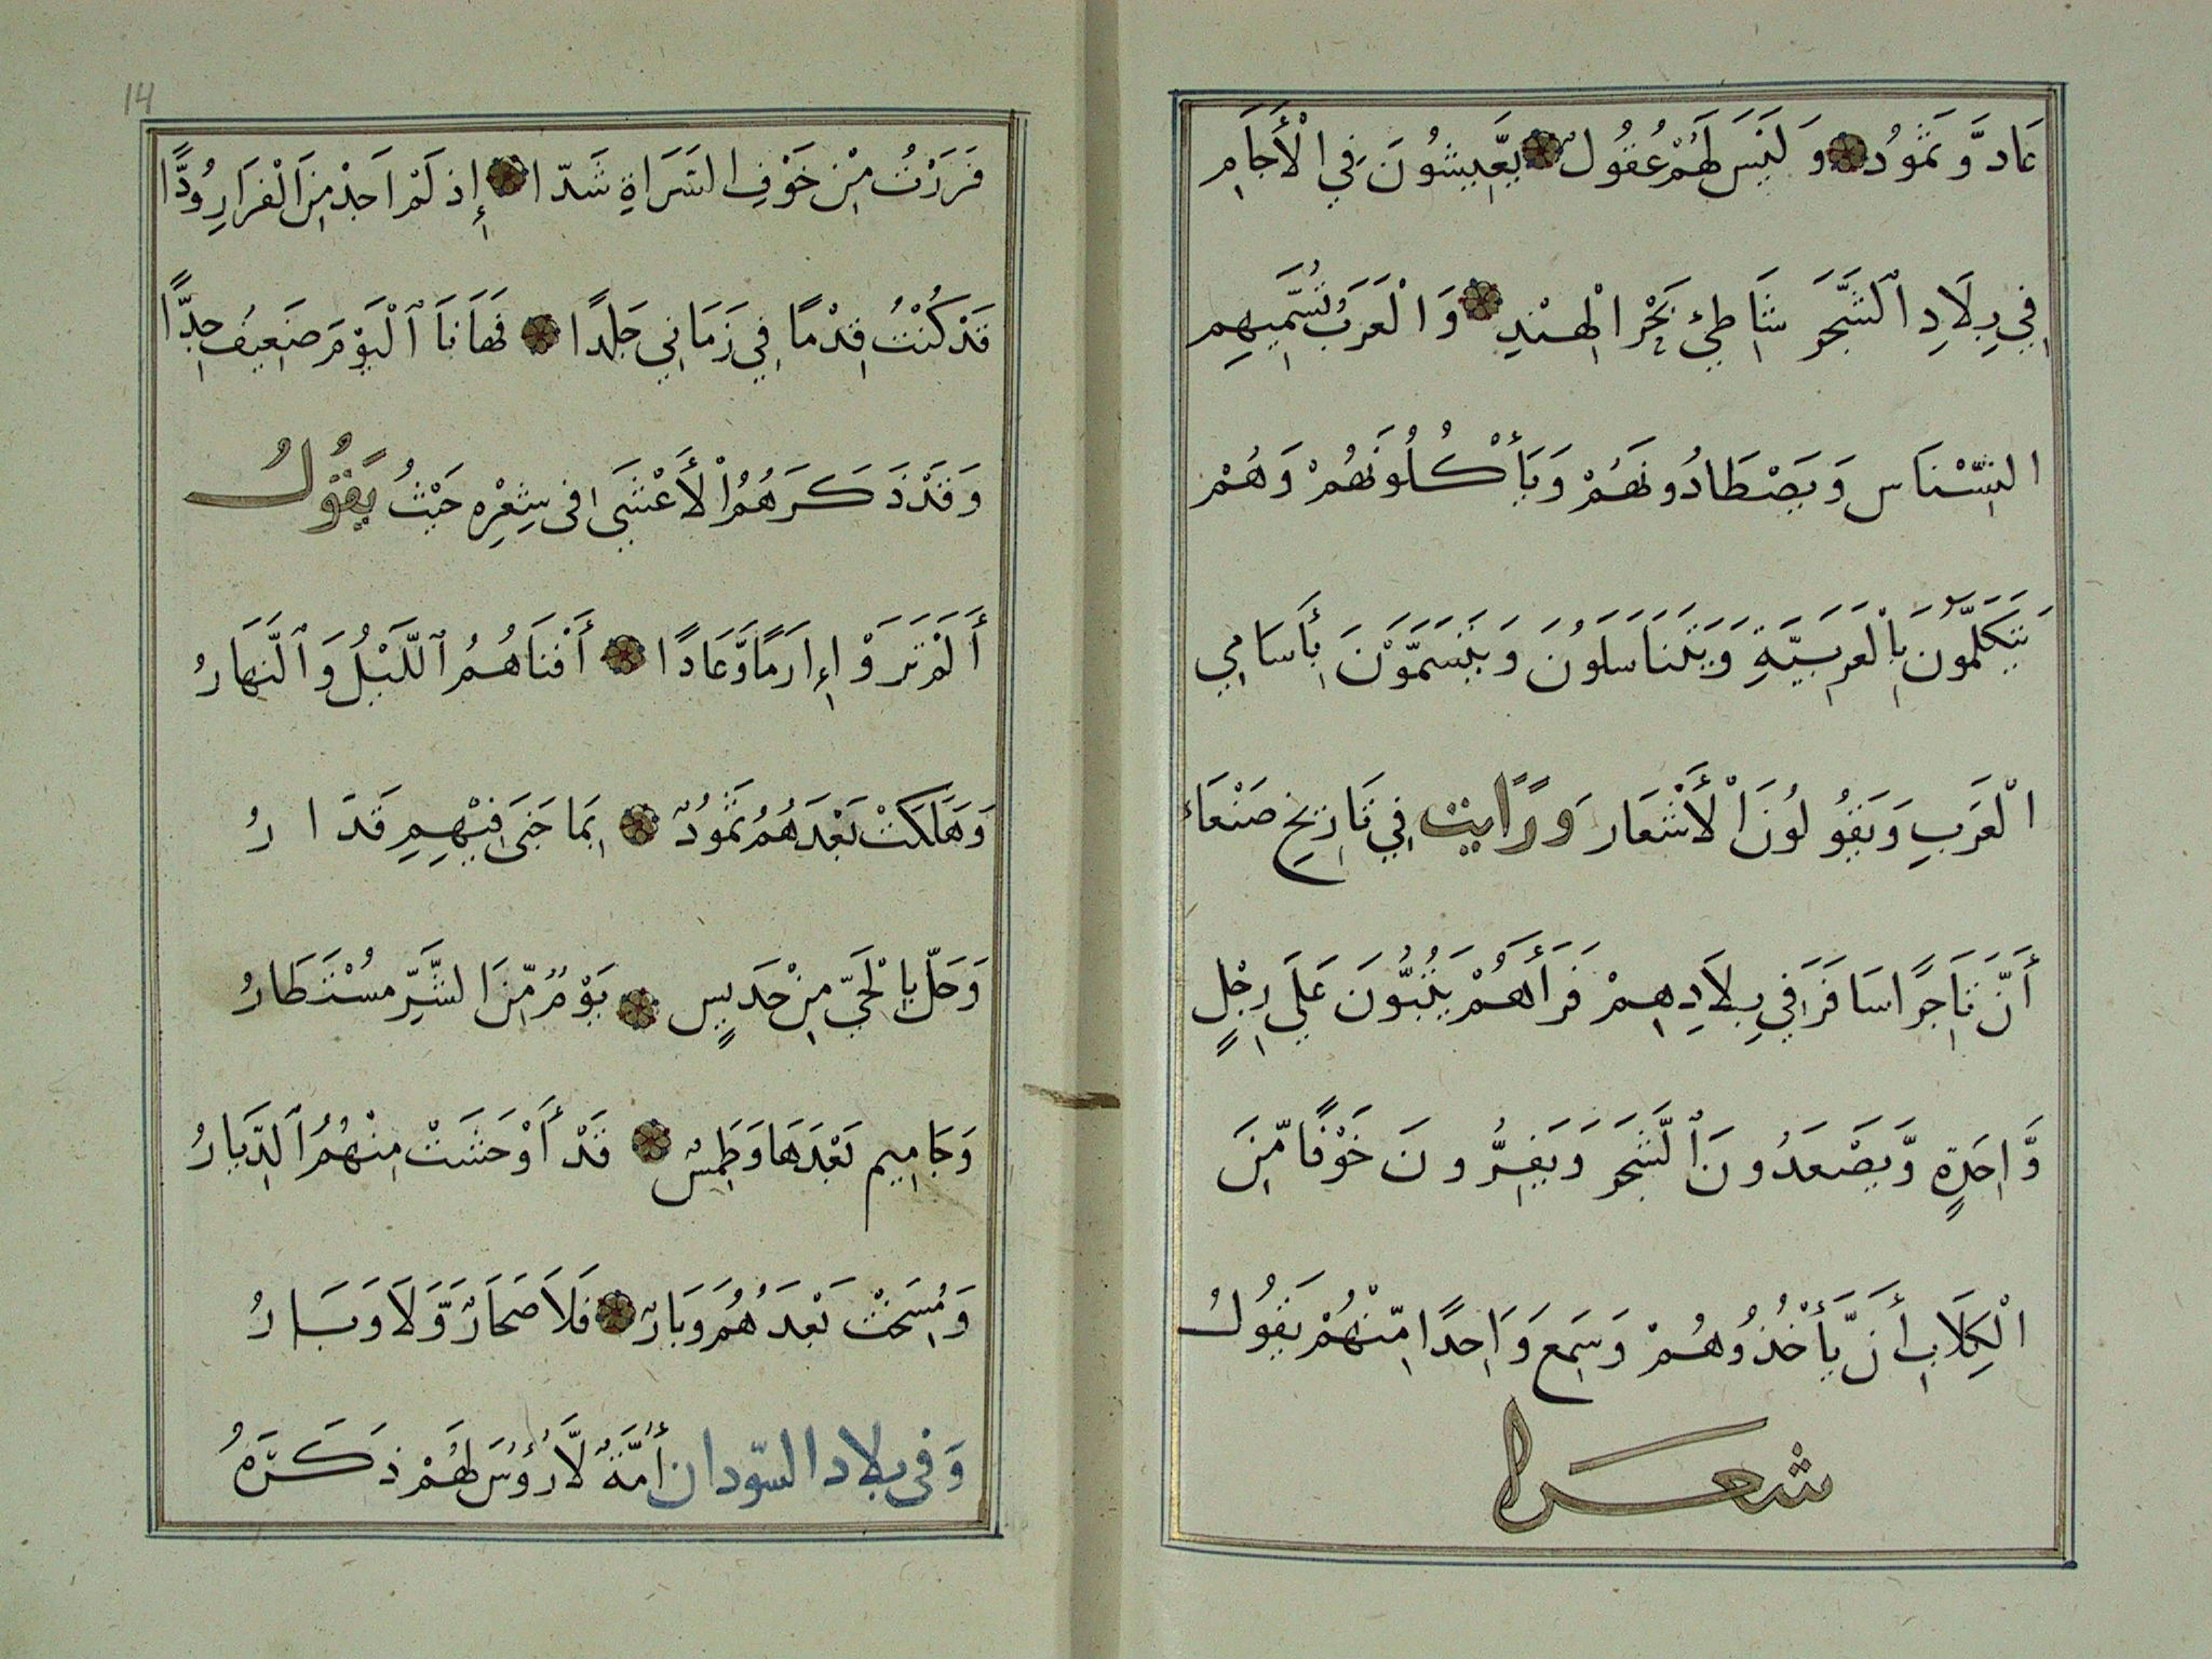 عَاد وَّثَمُودُ وَلَيْسَ لَهُمْ عُقُولٌ يَّعِيشُونَ فِي الْأَجَامِ
فِي بِلَادِ ٱلشَّجَرِ شَاطِئِ بَحْرِ الْهِنْدِ وَالْعَرَبُ تُسَمِّيهِم
النِّسْنَاس وَيَصْطَادُونَهُمْ وَيَأْكُلُونَهُمْ وَهُمْ
يَتَكَلَّمُونَ بِالْعَرَبِيَّةِ وَيَتَنَاسَلُونَ وَيَتَسَمَّوْنَ بِأَسَامِي
الْعَرَبِ وَيَقُولُونَ الْأَشْعَارَ وَرَايت فِي تَارِيخِ صَنْعَاءَ
أَنَّ تَاجِرًا سَافَرَ فِي بِلَادِهِمْ فَرَأَهُمْ يَثِبُّونَ عَلَي رِجْلٍ
وَّاحِدَةٍ وَّيَصْعَدُونَ ٱلشَّجَرَ وَيَفِرُّونَ خَوْفًا مِّنَ
الْكِلَابِ أَن يَّأْخُذُوهُمْ وَسَمِعَ وَاحِدًا مِّنْهُمْ يَقُولُ
شعرا
14
فَرَرْتُ مِنْ خَوْفِ الشَرَاةِ شَدّا إِذ لَمْ اَجِدْ مِنَ الْفِرَارِ بُدًّا
قَدْ كُنْتُ قِدْمًا فِي زَمَانِي جَلِدًا فَهَا نَا ٱلْيَوْمَ ضَعِيفُ جِدًّا
وَقَدْ ذَكَرَهُمُ الْأَعْشَي فى شِعْرِهِ حَيْثُ يَقُولُ
أَلَمْ تَرَوْا إِرَمًا وَّعَادًا أَفْنَاهُمُ ٱللَّيْلُ وَٱلنَّهَارُ
وَهَلَكَتْ بَعْدَهُمُ ثَمُودٌ بِمَا جَنَى فِيْهِمِ قَدَارُ
وَحَلَّ بِالْحَيِّ مِنْ جَدِيسٍ يَوْمٌ مِّنَ الشَّرِّ مُسْتَطَارُ
وَجَامِيم بَعْدَهَا وَطِمْسٌ قَدْ أَوْحَشَتْ مِنْهُمُ ٱلدِّيَارُ
وَمُسِخَتْ بَعْدَهُمُ وَبَارٌ فَلَا صَحَارٌ وَّلَا وَبَارُ
وَفى بلاد السّودان أُمَّةٌ لَّا رُؤُسَ لَهُمْ ذَكَرَهُ